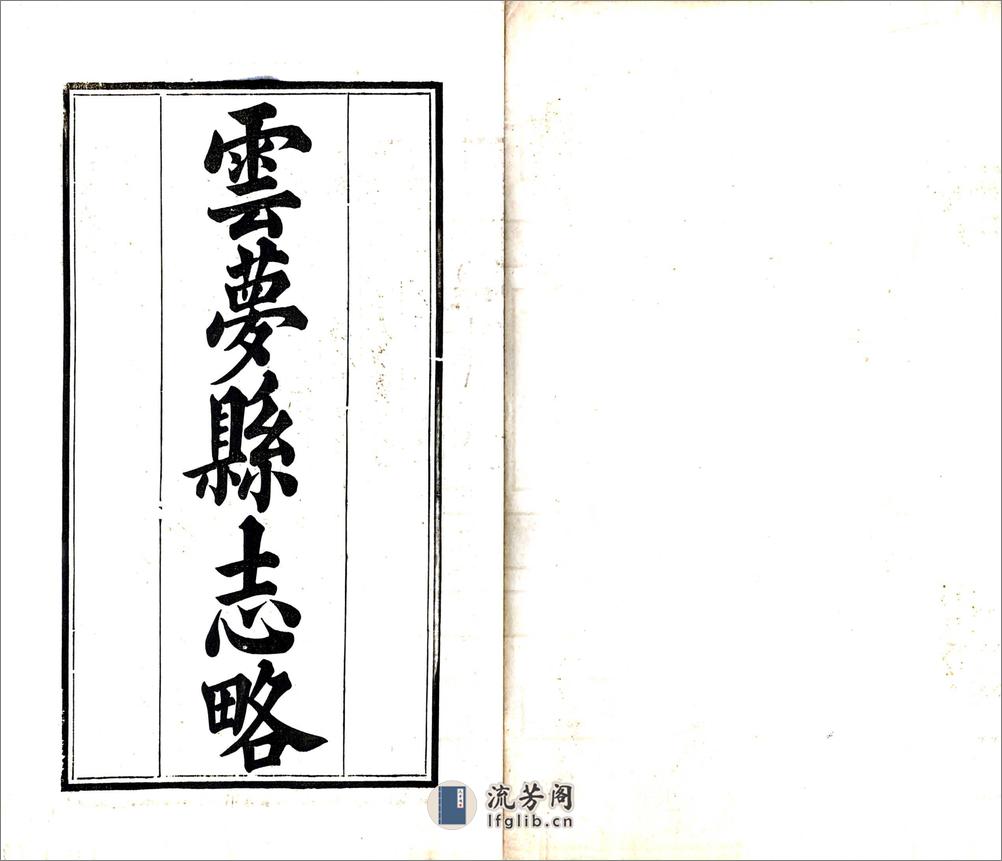 雲夢縣志略
流芳阁
lfglib.cn